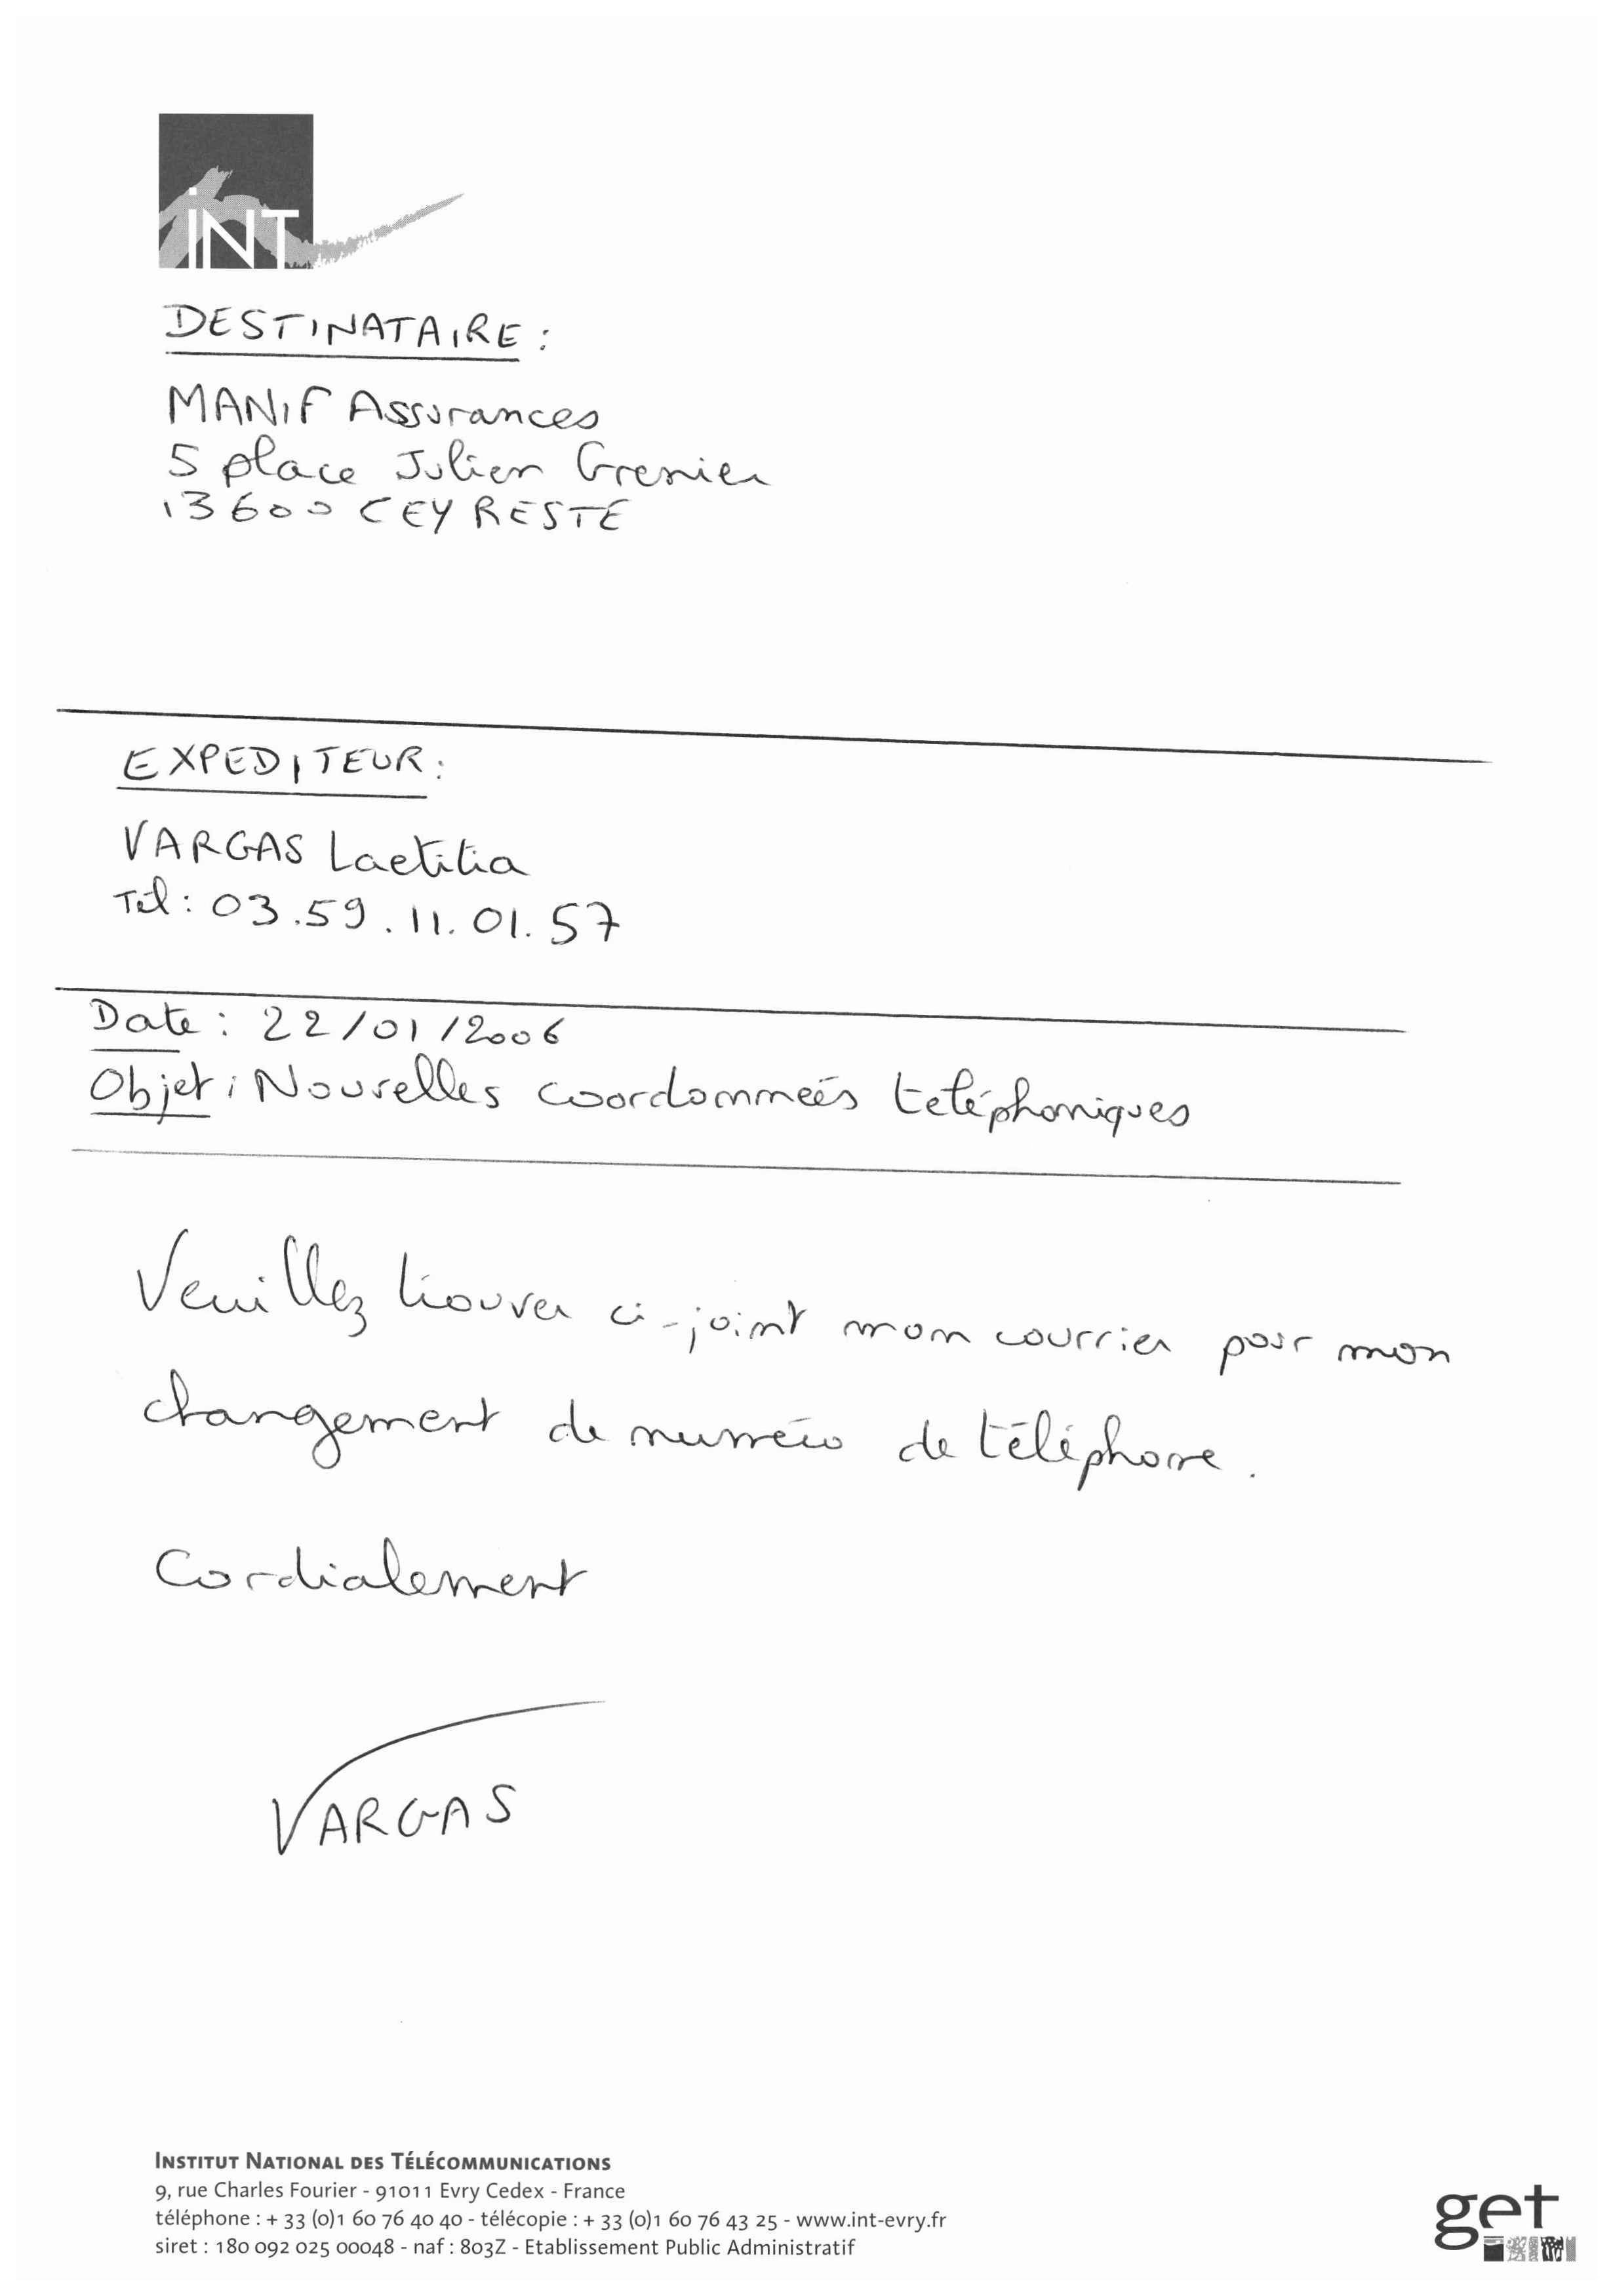 iNT
DESTINATAIRE :
MANIF Assurances
5 place Julien Grenier
13600 CEYRESTE
EXPEDITEUR :
VARGAS Laetitia
Tél : 03.59.11.01.57
Date : 22/01/2006
Objet : Nouvelles coordonnées téléphoniques
Veuillez trouver ci-joint mon courrier pour mon
changement de numéro de téléphone.
Cordialement
VARGAS
INSTITUT NATIONAL DES TÉLÉCOMMUNICATIONS
9, rue Charles Fourier - 91011 Evry Cedex - France
téléphone : + 33 (0)1 60 76 40 40 - télécopie : + 33 (0)1 60 76 43 25 - www.int-evry.fr
siret : 180 092 025 00048 - naf : 803Z - Etablissement Public Administratif
get